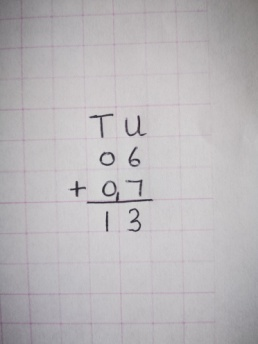 T U
0 6
+ 0,7
1 3